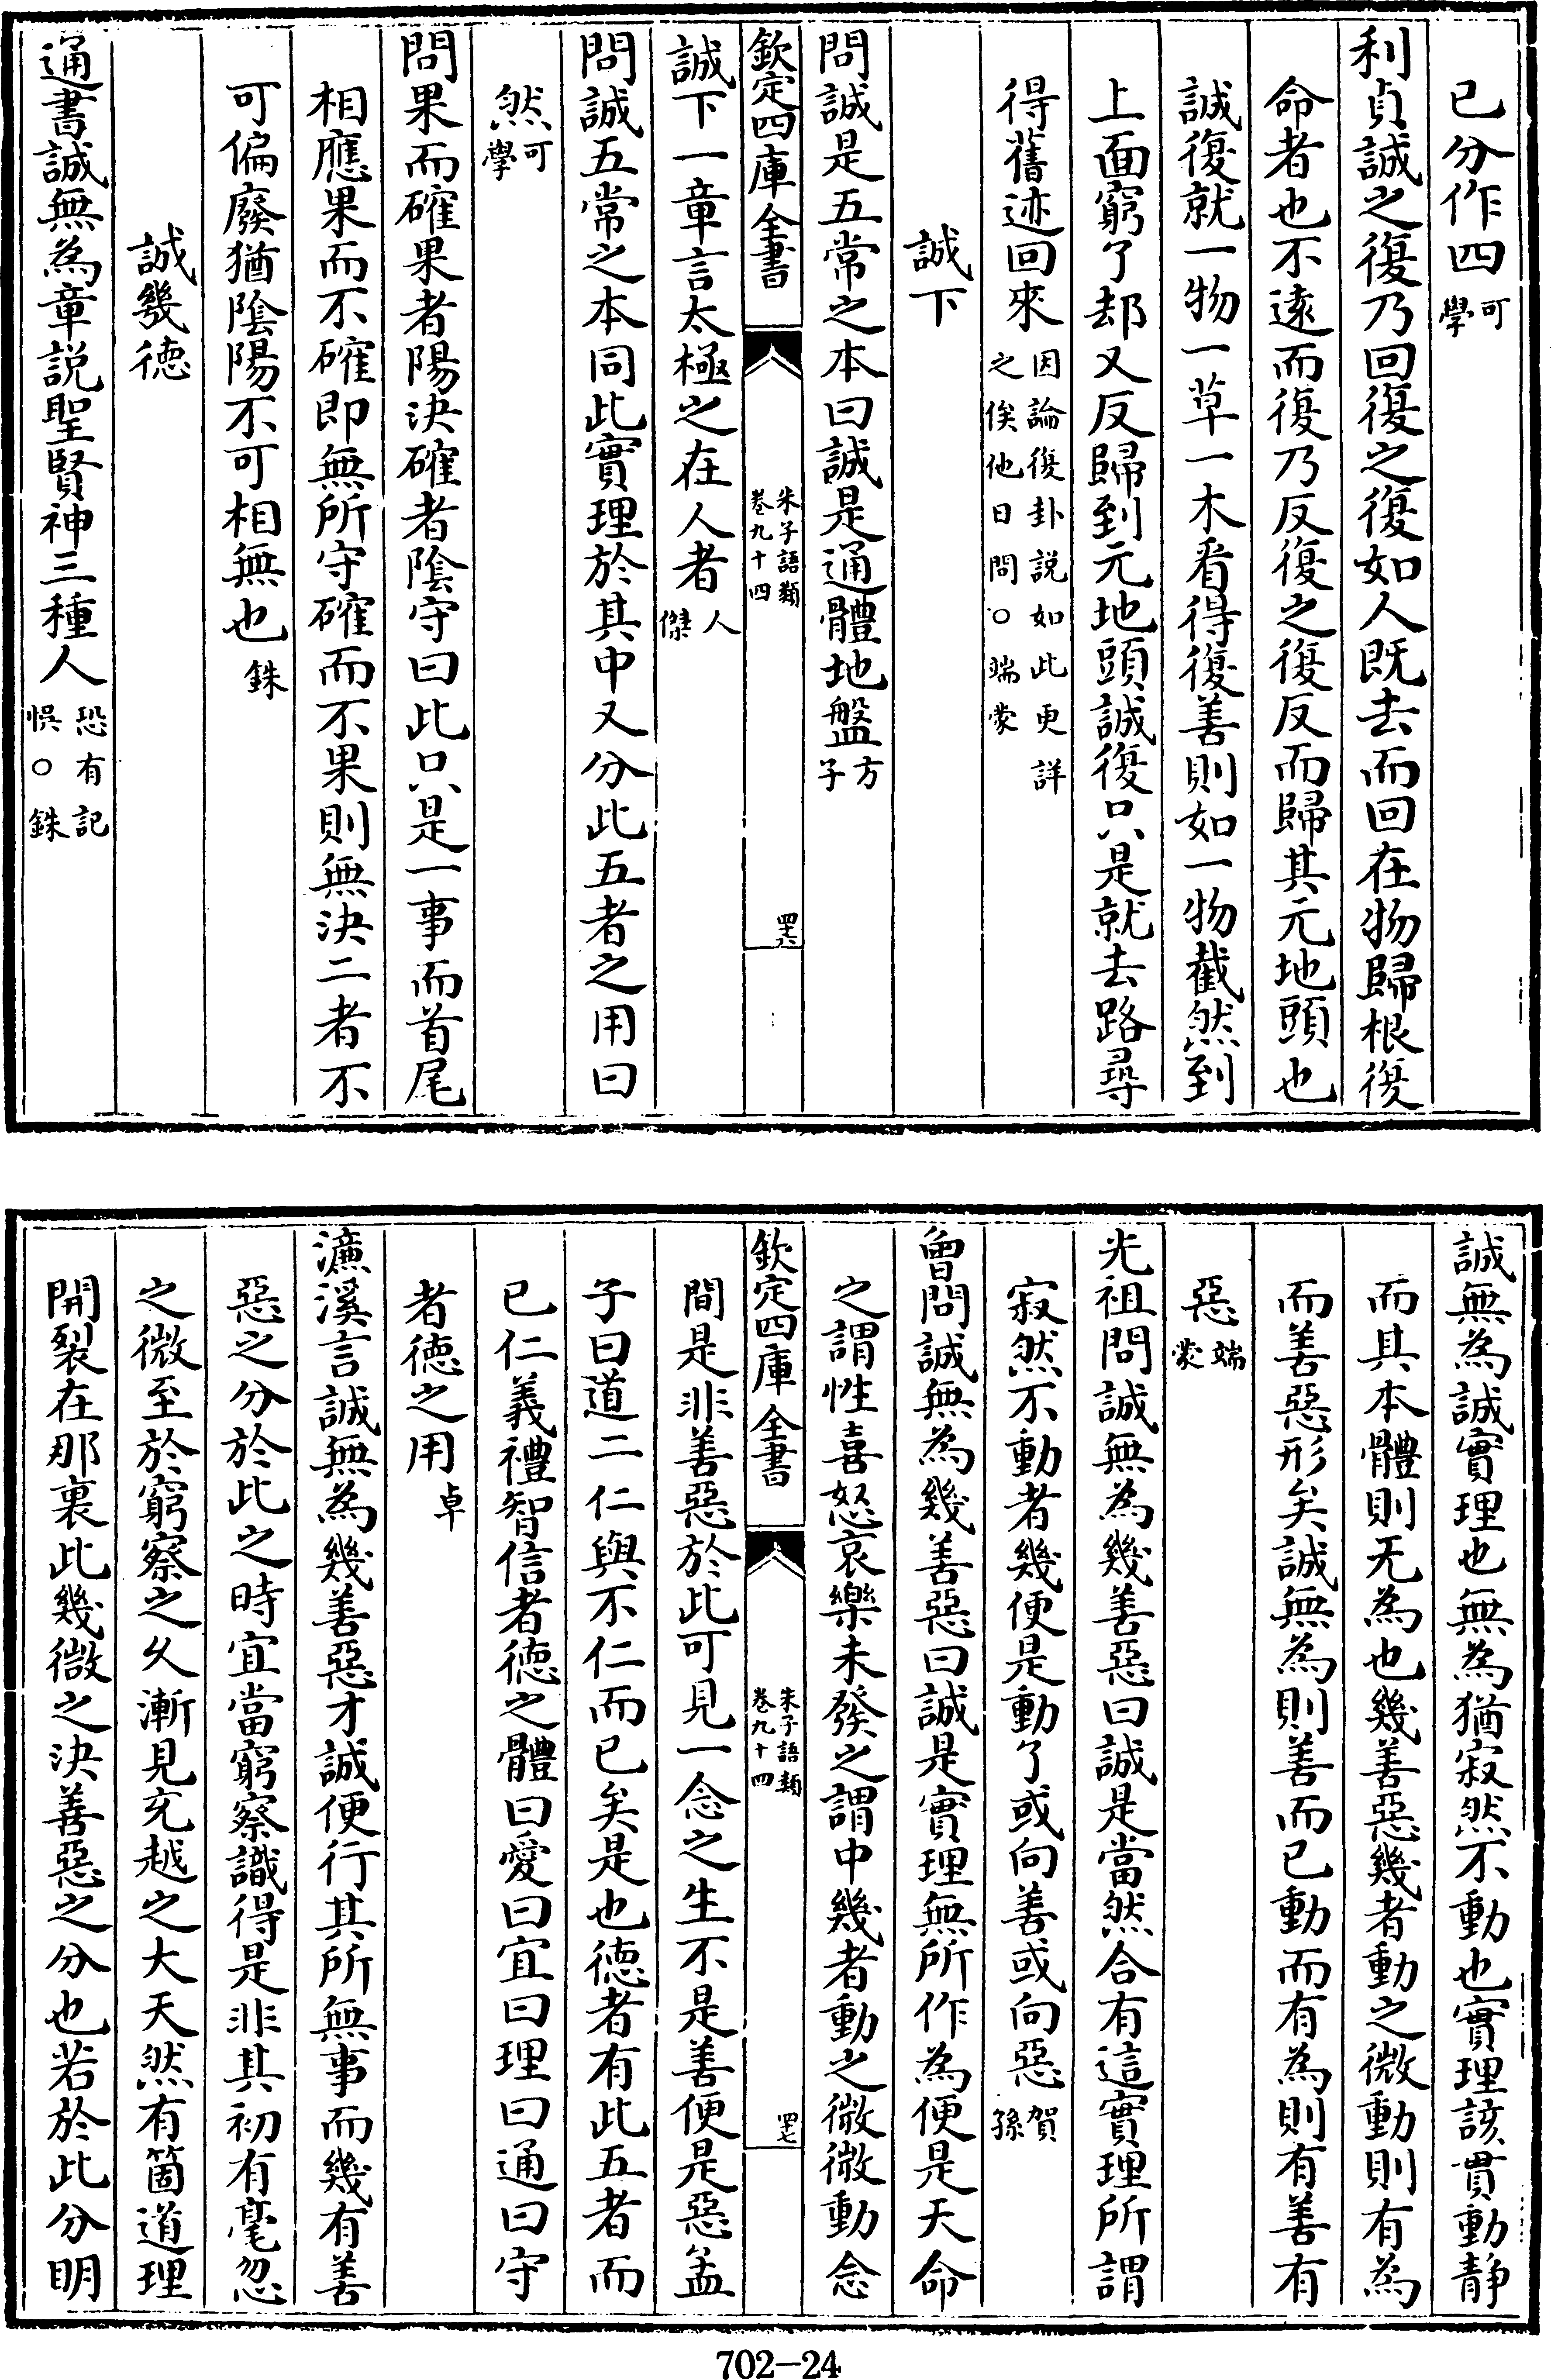 已分作四可學
利貞誠之復乃回復之復如人既去而回在物歸根復
命者也不遠而復乃反復之復反而歸其元地頭也
誠復就一物一草一木看得復善則如一物截然到
上面窮了却又反歸到元地頭誠復只是就去路尋
得舊迹回來因論復卦説如此更詳之俟他日問○端蒙
誠下
問誠是五常之本曰誠是通體地盤方子
欽定四庫全書
朱子語類
卷九十四
四六
誠下一章言太極之在人者人傑
問誠五常之本同此實理於其中又分此五者之用曰
然可學
問果而確果者陽決確者陰守曰此只是一事而首尾
相應果而不確即無所守確而不果則無決二者不
可偏廢猶陰陽不可相無也銖
誠幾徳
通書誠無為章説聖賢神三種人恐有記悞○銖
誠無為誠實理也無為猶寂然不動也實理該貫動静
而其本體則无為也幾善惡幾者動之微動則有為
而善惡形矣誠無為則善而已動而有為則有善有
惡端蒙
光祖問誠無為幾善惡曰誠是當然合有這實理所謂
寂然不動者幾便是動了或向善或向惡賀孫
曽問誠無為幾善惡曰誠是實理無所作為便是天命
之謂性喜怒哀樂未發之謂中幾者動之微微動念
欽定四庫全書
朱子語類
卷九十四
四七
間是非善惡於此可見一念之生不是善便是惡孟
子曰道二仁與不仁而已矣是也徳者有此五者而
已仁義禮智信者徳之體曰愛曰宜曰理曰通曰守
者徳之用卓
濂溪言誠無為幾善惡才誠便行其所無事而幾有善
惡之分於此之時宜當窮察識得是非其初有毫忽
之微至於窮察之久漸見充越之大天然有箇道理
開裂在那裏此幾微之決善惡之分也若於此分明
702-24